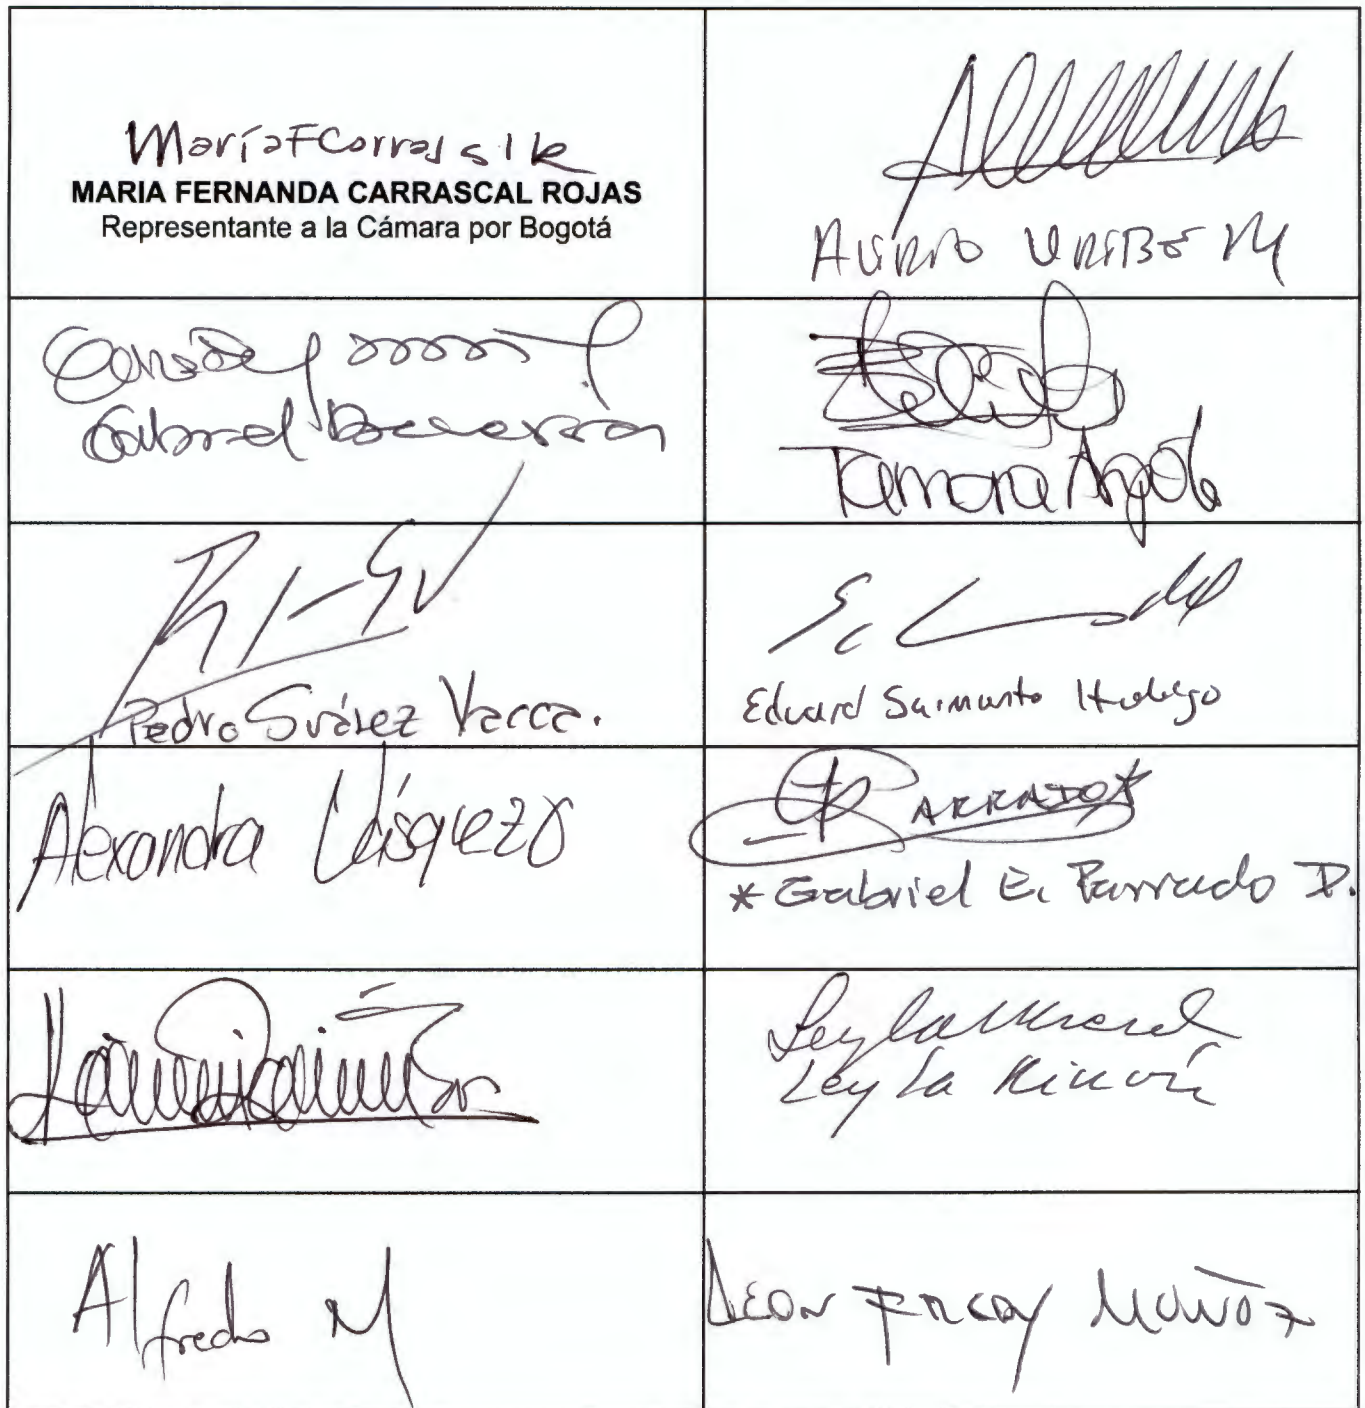 MaríaFCarrascalR
MARIA FERNANDA CARRASCAL ROJAS
Representante a la Cámara por Bogotá
Alirio Uribe M
Gabriel Becerra
Tamara Argote
Pedro Suárez Vacca.
Eduard Sarmiento Hidalgo
Alexandra Vásquez
PARRADO*
* Gabriel E. Parrado D.
Leyla
Leyla Rincón
Alfredo M
León Fredy Muñoz